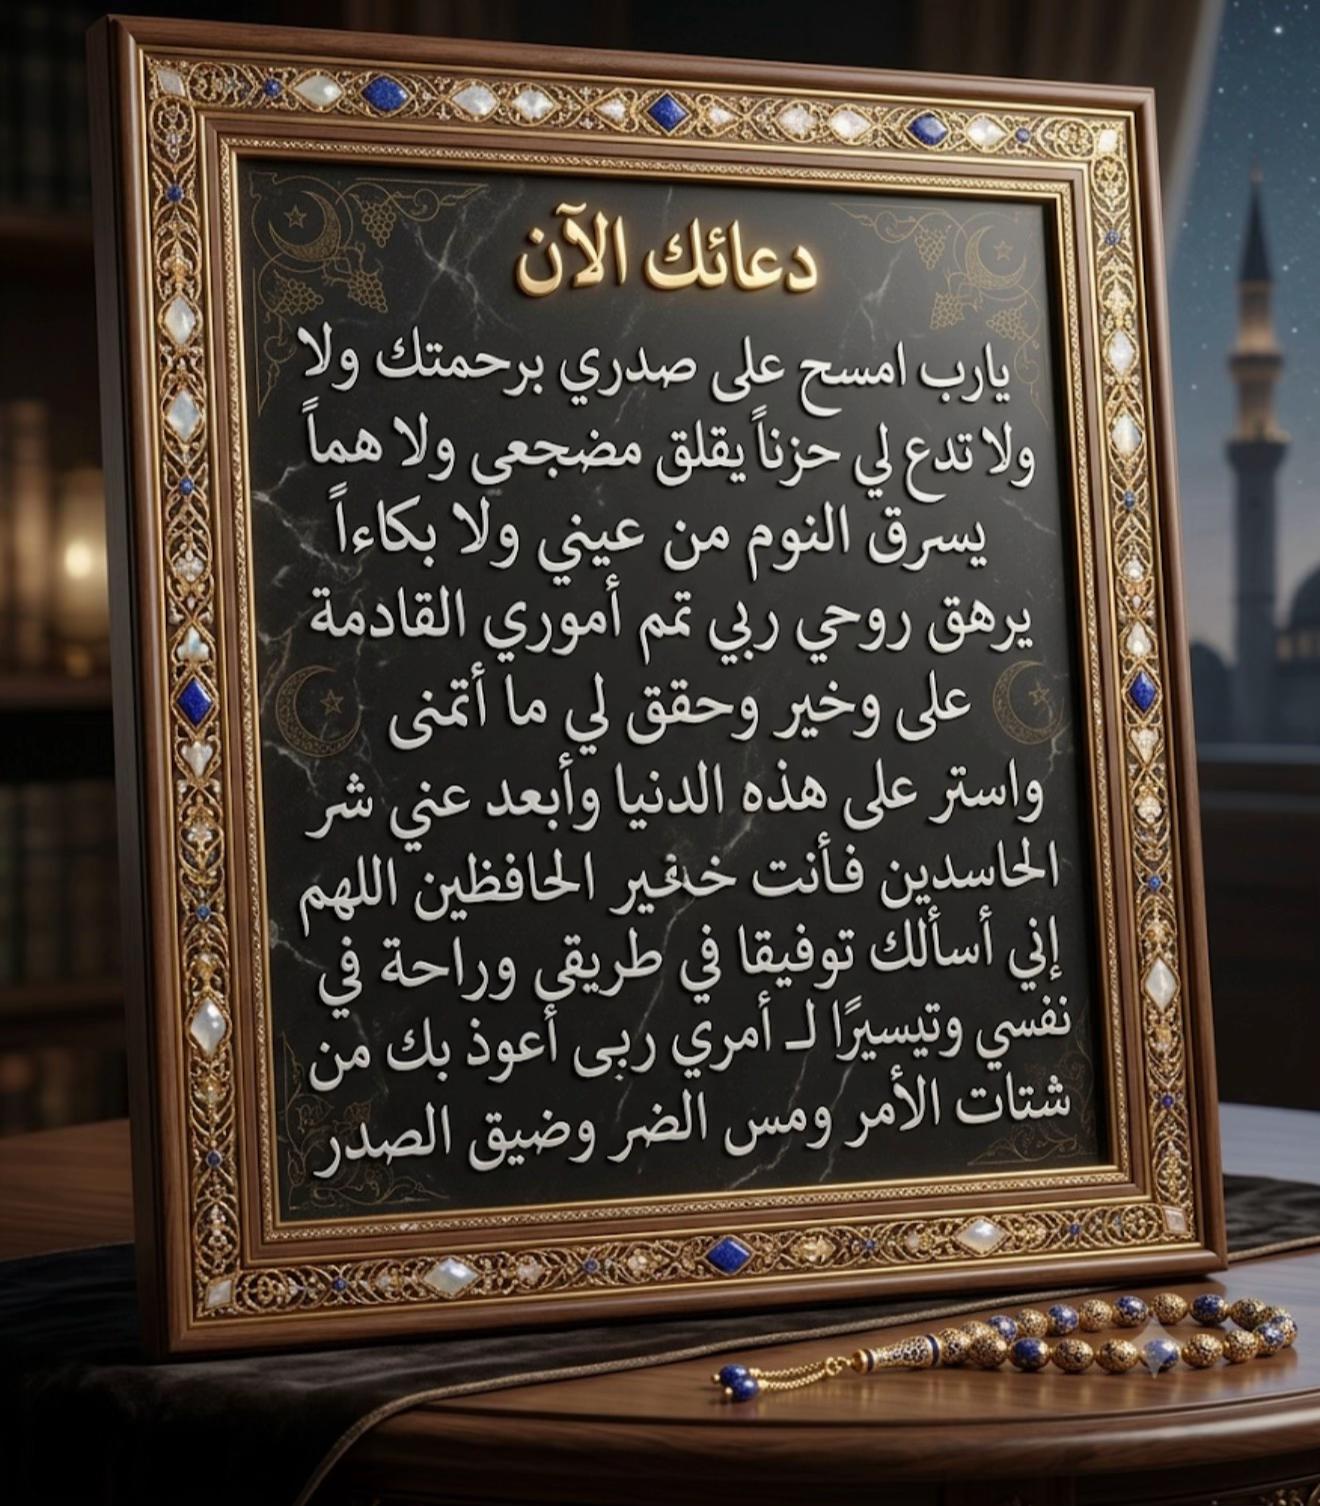 دعائك الآن
يارب امسح على صدري برحمتك ولا
ولا تدع لي حزناً يقلق مضجعى ولا هماً
يسرق النوم من عيني ولا بكاءاً
يرهق روحي ربي تمم أموري القادمة
على وخير وحقق لي ما أتمنى
واستر على هذه الدنيا وأبعد عني شر
الحاسدين فأنت الحافظين اللهم
إني أسألك توفيقا في طريقى وراحة في
نفسي وتيسيرًا لـ أمري ربى أعوذ بك من
شتات الأمر ومس الضر وضيق الصدر